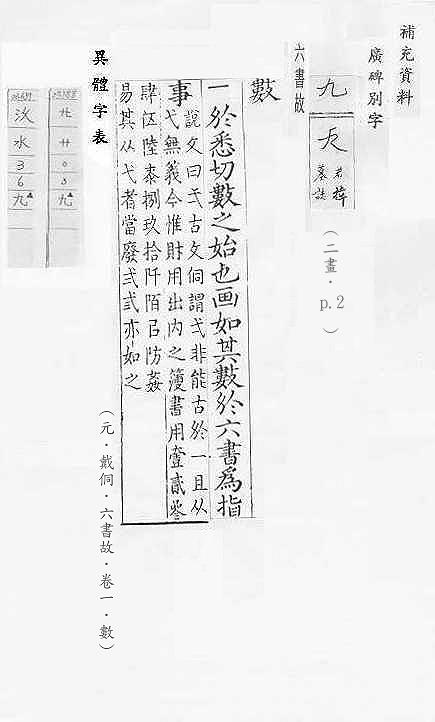 補充資料
廣碑別字
九
墓誌
（二畫．p.2）
六書故
數
一於悉切數之始也画如其數於六書為指
事
說文曰弌古文侗謂弌非能古於一且从
弋無義今惟財用出內之簿書用壹貳叄
肆伍陸桼捌玖拾阡陌㠯防姦
易其从弋者當廢弍弎亦如之
（元．戴侗．六書故．卷一．數）
異體字表
艹
0
8
九▲
水
3
6
九▲